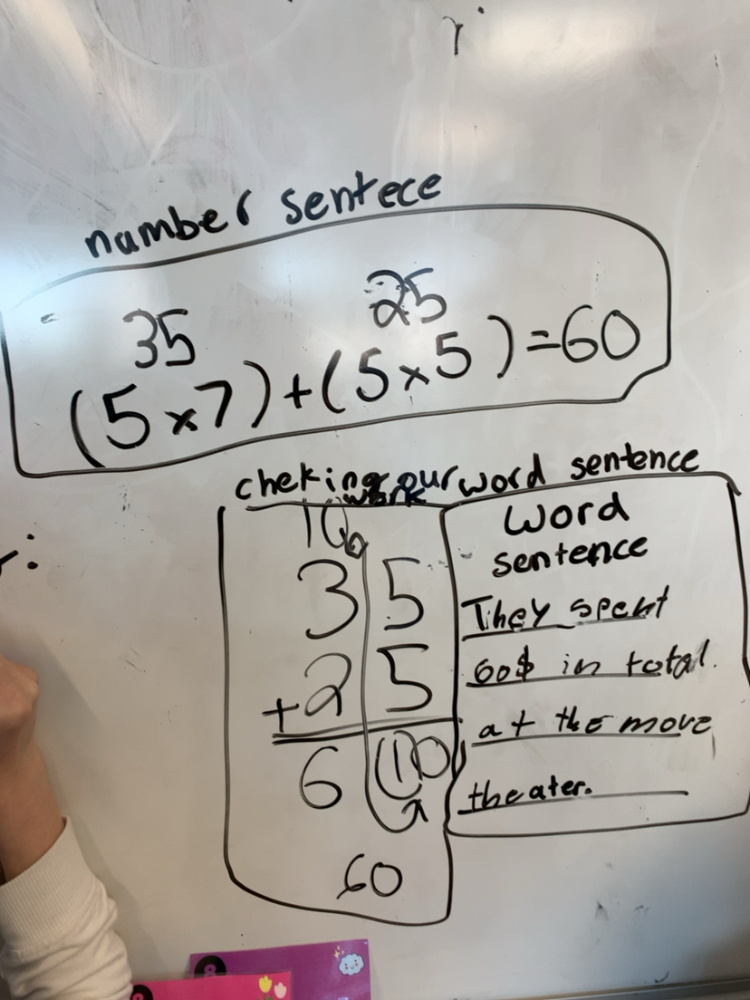 number sentece
35 25
(5×7)+(5×5)=60
cheking our word sentence
work
10
35
+25
6 (10)
60
Word
sentence
They spent
60$ in total.
at the move
theater.